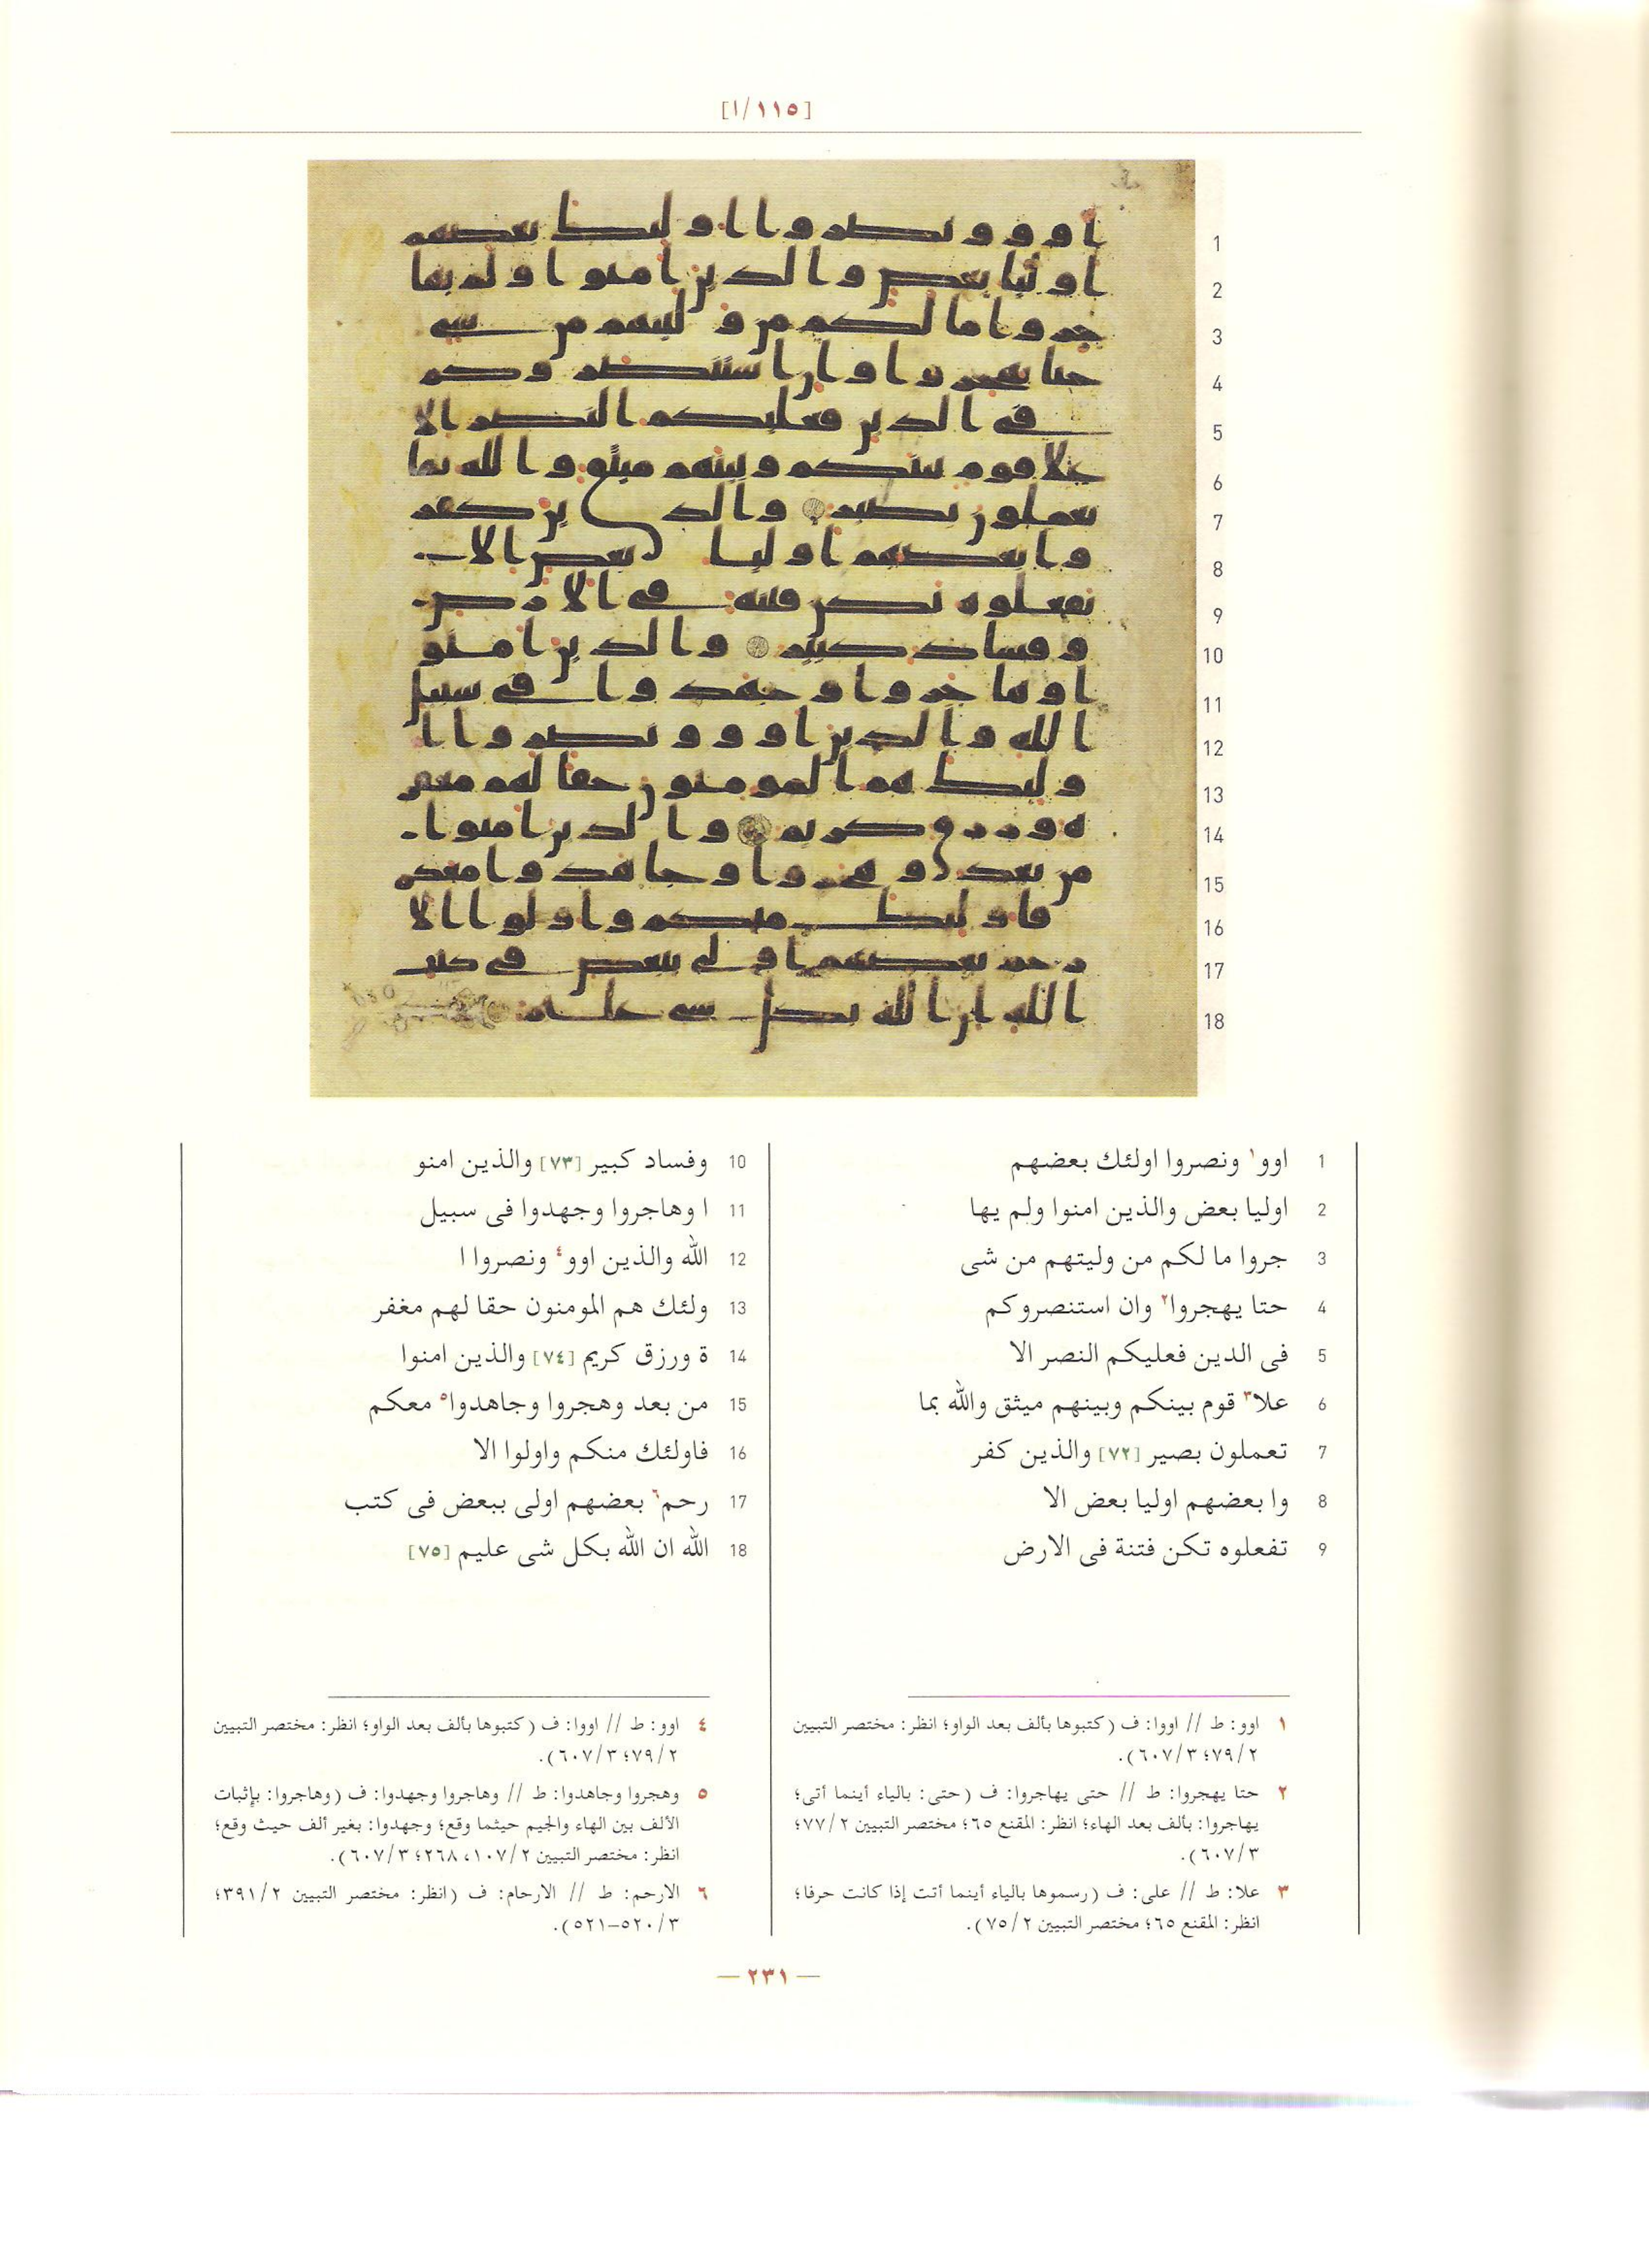 [١/١١٥]
1 اوو١ ونصروا اولئك بعضهم
2 اوليا بعض والذين امنوا ولم يها
3 جروا ما لكم من وليتهم من شى
4 حتا يهجروا٢ وان استنصروكم
5 فى الدين فعليكم النصر الا
6 علا٣ قوم بينكم وبينهم ميثق والله بما
7 تعملون بصير [٧٢] والذين كفر
8 وا بعضهم اوليا بعض الا
9 تفعلوه تكن فتنة فى الارض
10 وفساد كبير [٧٣] والذين امنو
11 ا وهاجروا وجهدوا فى سبيل
12 الله والذين اوو٤ ونصروا ا
13 ولئك هم المومنون حقا لهم مغفر
14 ة ورزق كريم [٧٤] والذين امنوا
15 من بعد وهجروا وجاهدوا٥ معكم
16 فاولئك منكم واولوا الا
17 رحم٦ بعضهم اولى ببعض فى كتب
18 الله ان الله بكل شى عليم [٧٥]
١ اوو: ط // اووا: ف (كتبوها بألف بعد الواو؛ انظر: مختصر التبيين
٢/٧٩؛ ٣/٦٠٧).
٢ حتا يهجروا: ط // حتى يهاجروا: ف (حتى: بالياء أينما أتى؛
يهاجروا: بألف بعد الهاء؛ انظر: المقنع ٦٥؛ مختصر التبيين ٢/٧٧؛
٣/٦٠٧).
٣ علا: ط // على: ف (رسموها بالياء أينما أتت إذا كانت حرفا؛
انظر: المقنع ٦٥؛ مختصر التبيين ٢/٧٥).
٤ اوو: ط // اووا: ف (كتبوها بألف بعد الواو؛ انظر: مختصر التبيين
٢/٧٩؛ ٣/٦٠٧).
٥ وهجروا وجاهدوا: ط // وهاجروا وجهدوا: ف (وهاجروا: بإثبات
الألف بين الهاء والجيم حيثما وقع؛ وجهدوا: بغير ألف حيث وقع؛
انظر: مختصر التبيين ٢/١٠٧، ٢٦٨؛ ٣/٦٠٧).
٦ الارحم: ط // الارحام: ف (انظر: مختصر التبيين ٢/٣٩١؛
٣/٥٢٠–٥٢١).
— ٢٣١ —